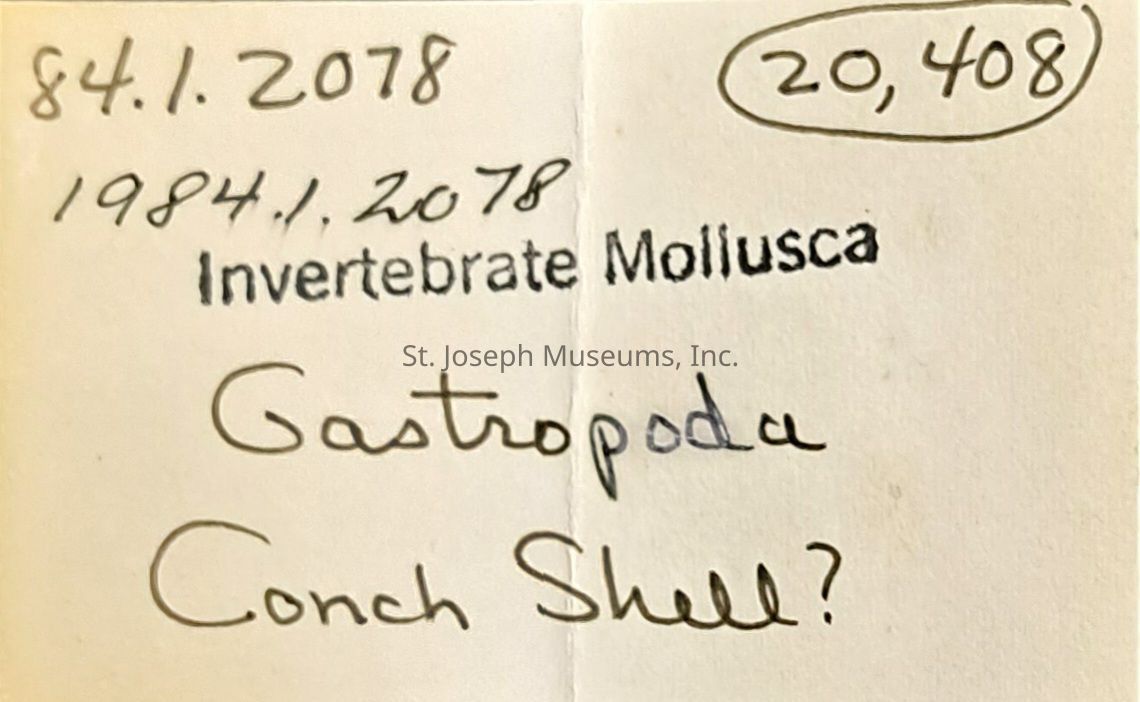 84.1.2078 20,408
1984.1.2078
Invertebrate Mollusca
St. Joseph Museums, Inc.
Gastropoda
Conch Shell?